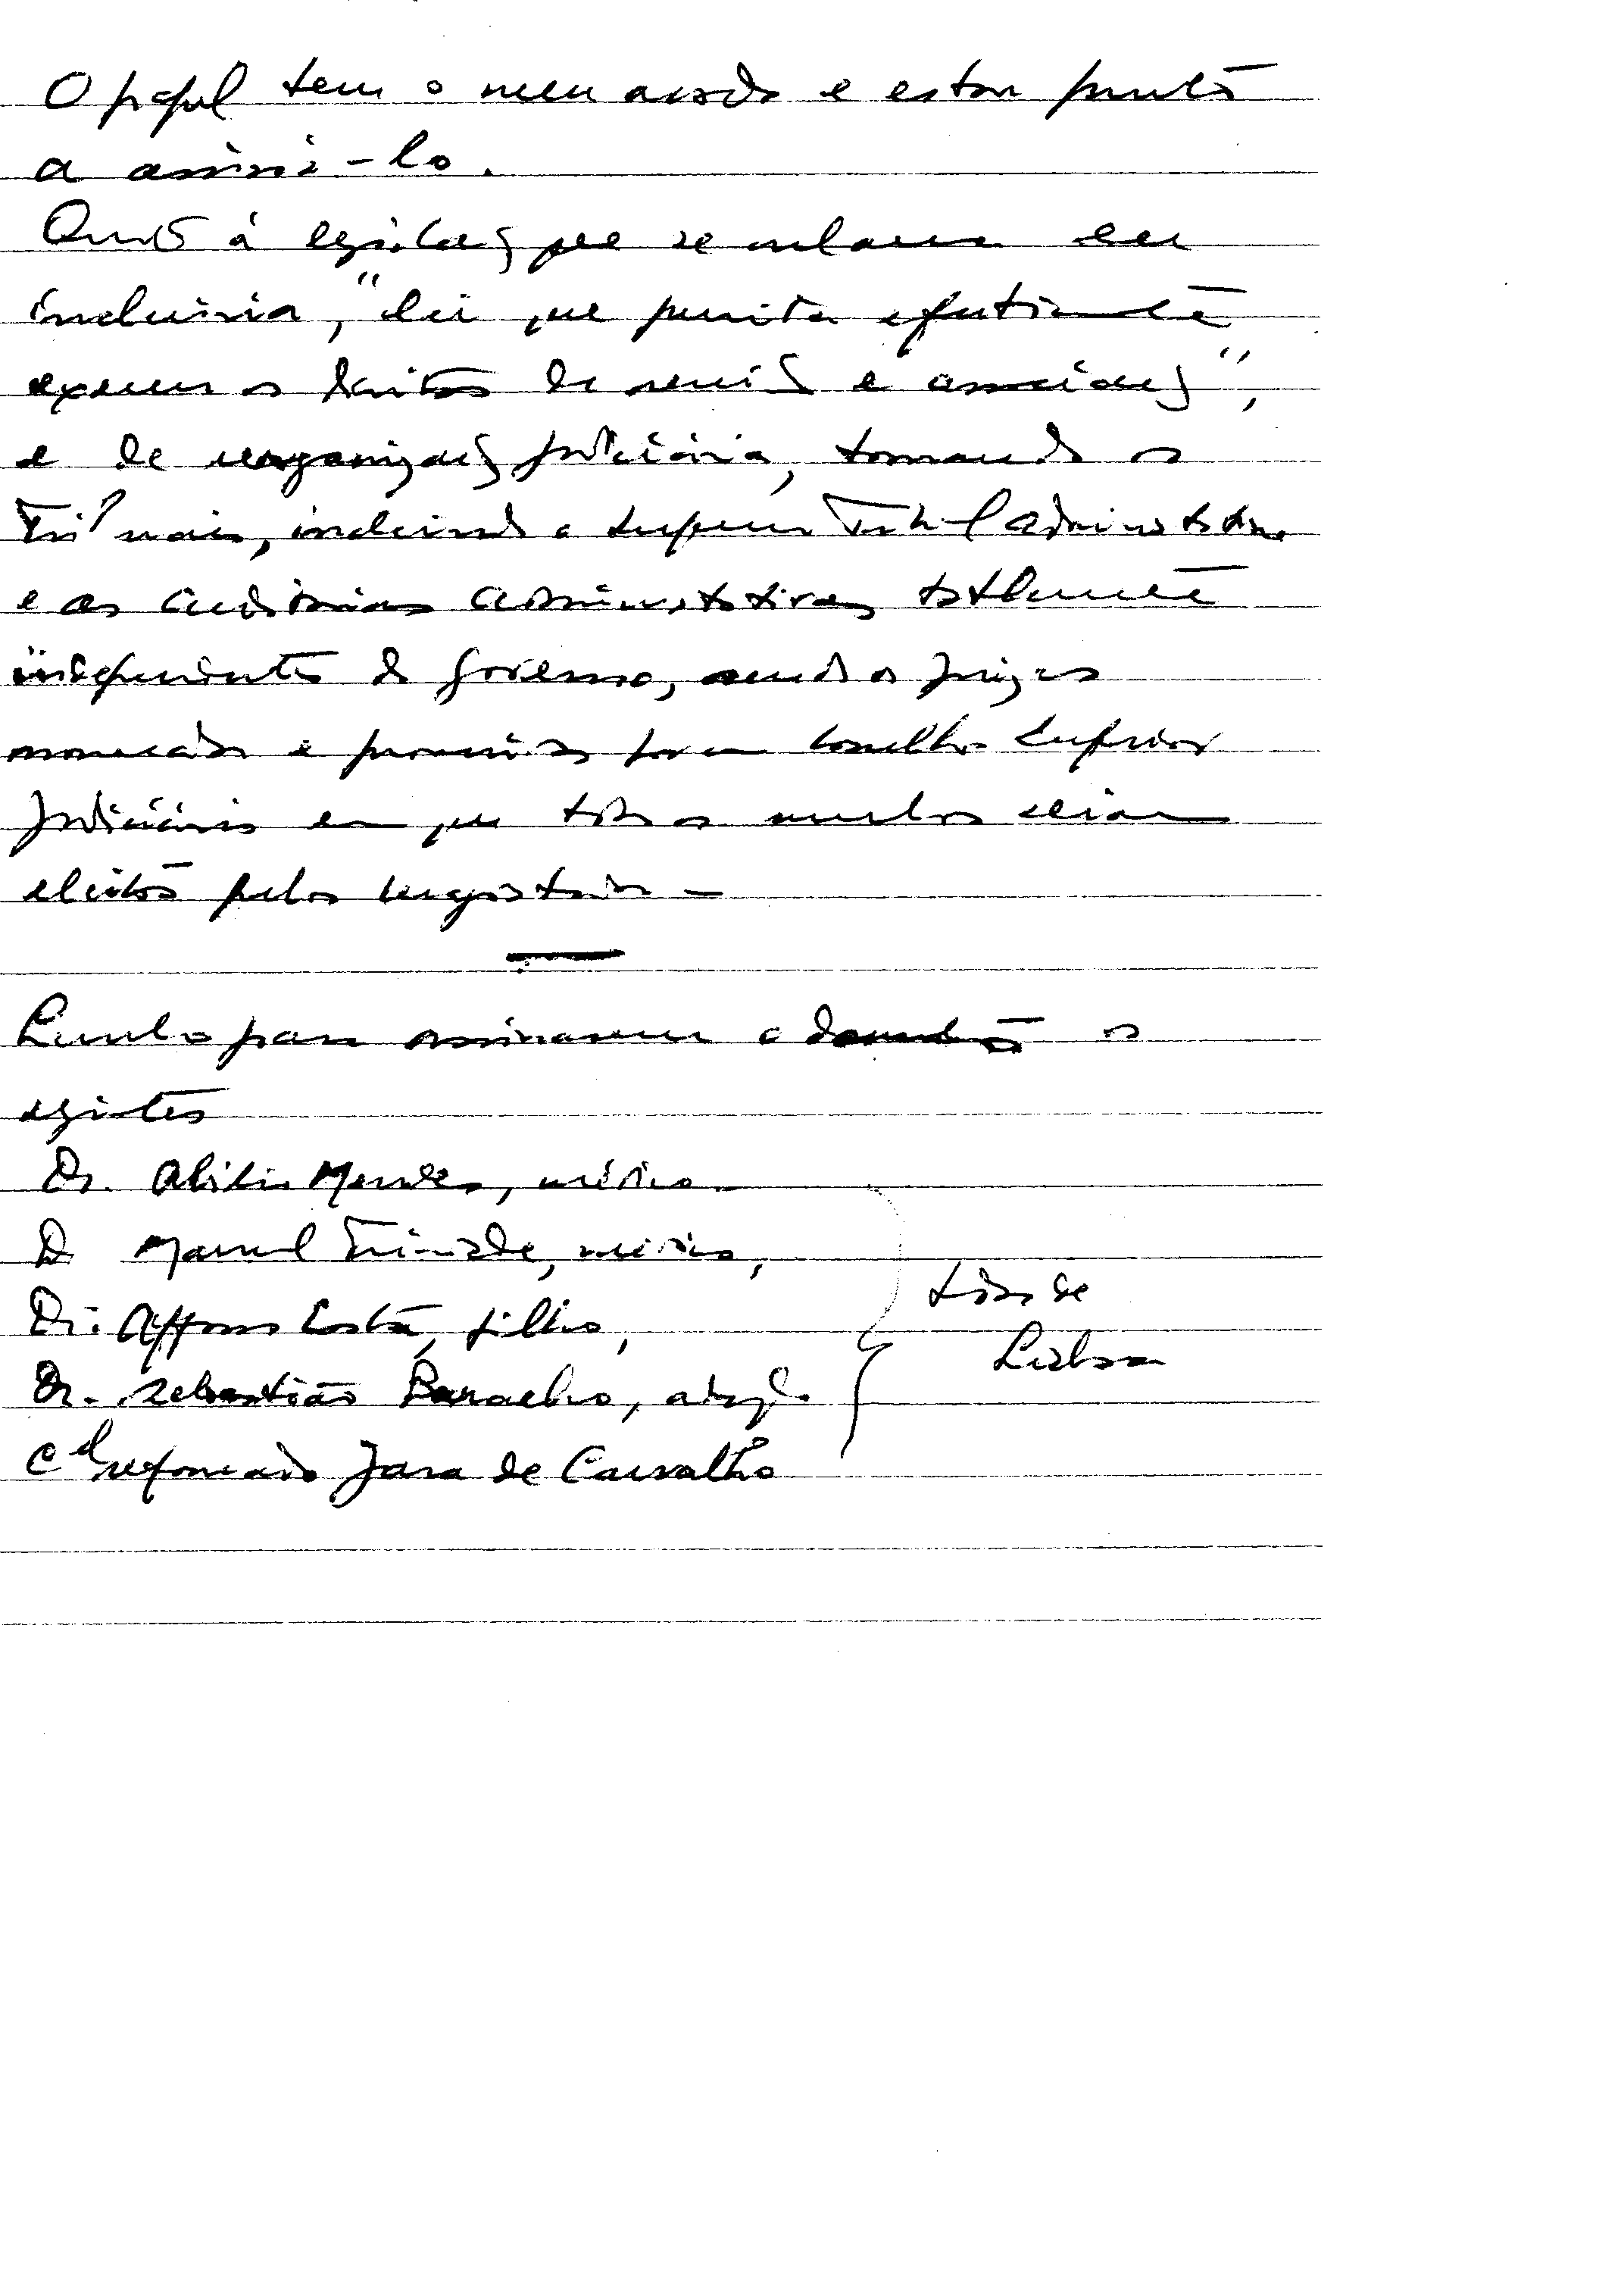 O papel tem o meu acordo e estou pronto
a assiná-lo.
Quanto à legislação que se reclama eu
incluiria, "lei que permita efectivamente
exercer os direitos de reunião e associação",
e de reorganização judiciária, tornando os
Tribunais, incluindo o Supremo Tribunal Administrativo
e as auditorias administrativas totalmente
independentes do governo, sendo os juízes
nomeados e promovidos por um Conselho Superior
Judiciário em que todos os membros seriam
eleitos pelos magistrados –
Lembro para assinarem o documento os
seguintes
Dr. Abílio Mendes, médico
Dr Manuel Trindade, médico,
Dr. Affonso Costa, filho,
Dr. Sebastião Ramalho, advogado
Cel reformado Jara de Carvalho
todos de
Lisboa